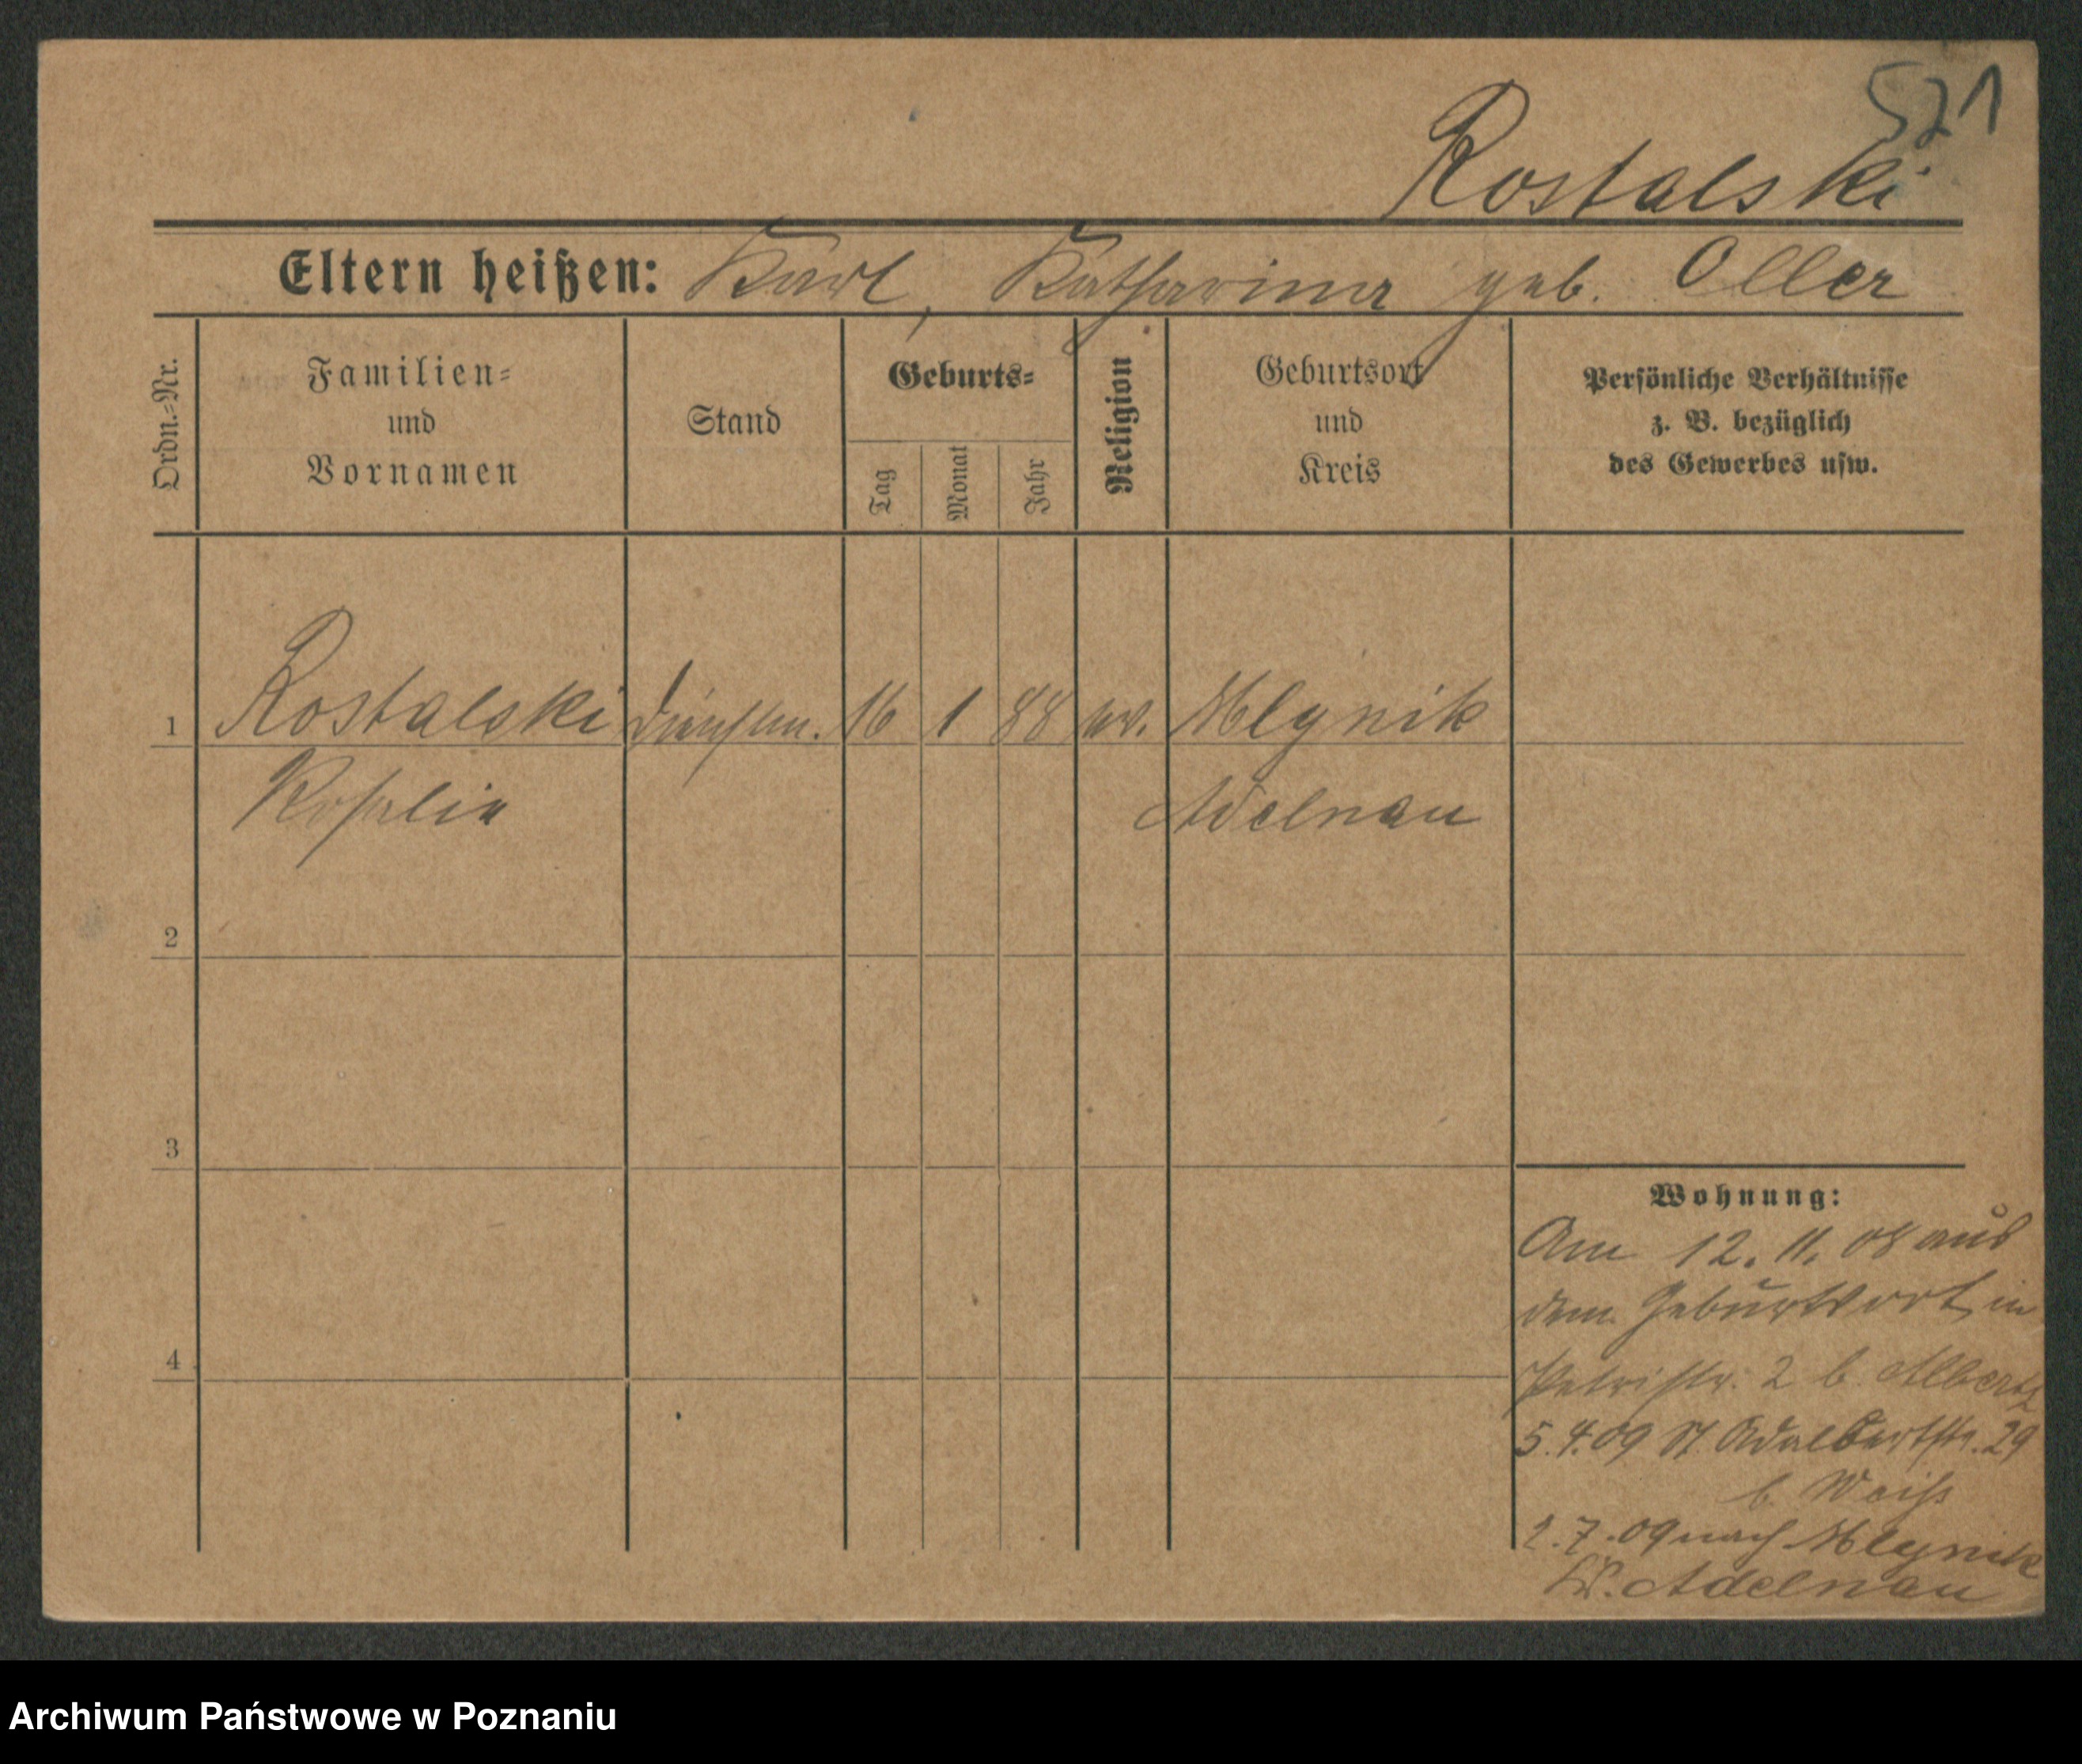 521
Rostalski
Eltern heißen: Karl, Katharina geb. Oller
Ordn.=Nr.
Familien=
und
Vornamen
Stand
Geburts=
Tag
Monat
Jahr
Religion
Geburtsort
und
Kreis
Persönliche Verhältnisse
z. B. bezüglich
des Gewerbes usw.
1 Rostalski Dienstm. 16 1 88 ev. Mlynik
Rosalie Adelnau
2
3
4
Wohnung:
Am 12. 11. 08 aus
dem Geburtsort in
Petristr. 2 b. Albertz
5.4.09 St. Adalbertstr. 29
b. Weiss
2.7.09 nach Mlynik
Kr. Adelnau
Archiwum Państwowe w Poznaniu